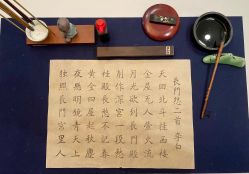 長門怨二首 李白
天回北斗挂西楼
金屋无人螢火流
月光欲到長門殿
别作深宮一段愁
桂殿長愁不記春
黃金四屋起秋塵
夜懸明鏡青天上
獨照長門宮里人